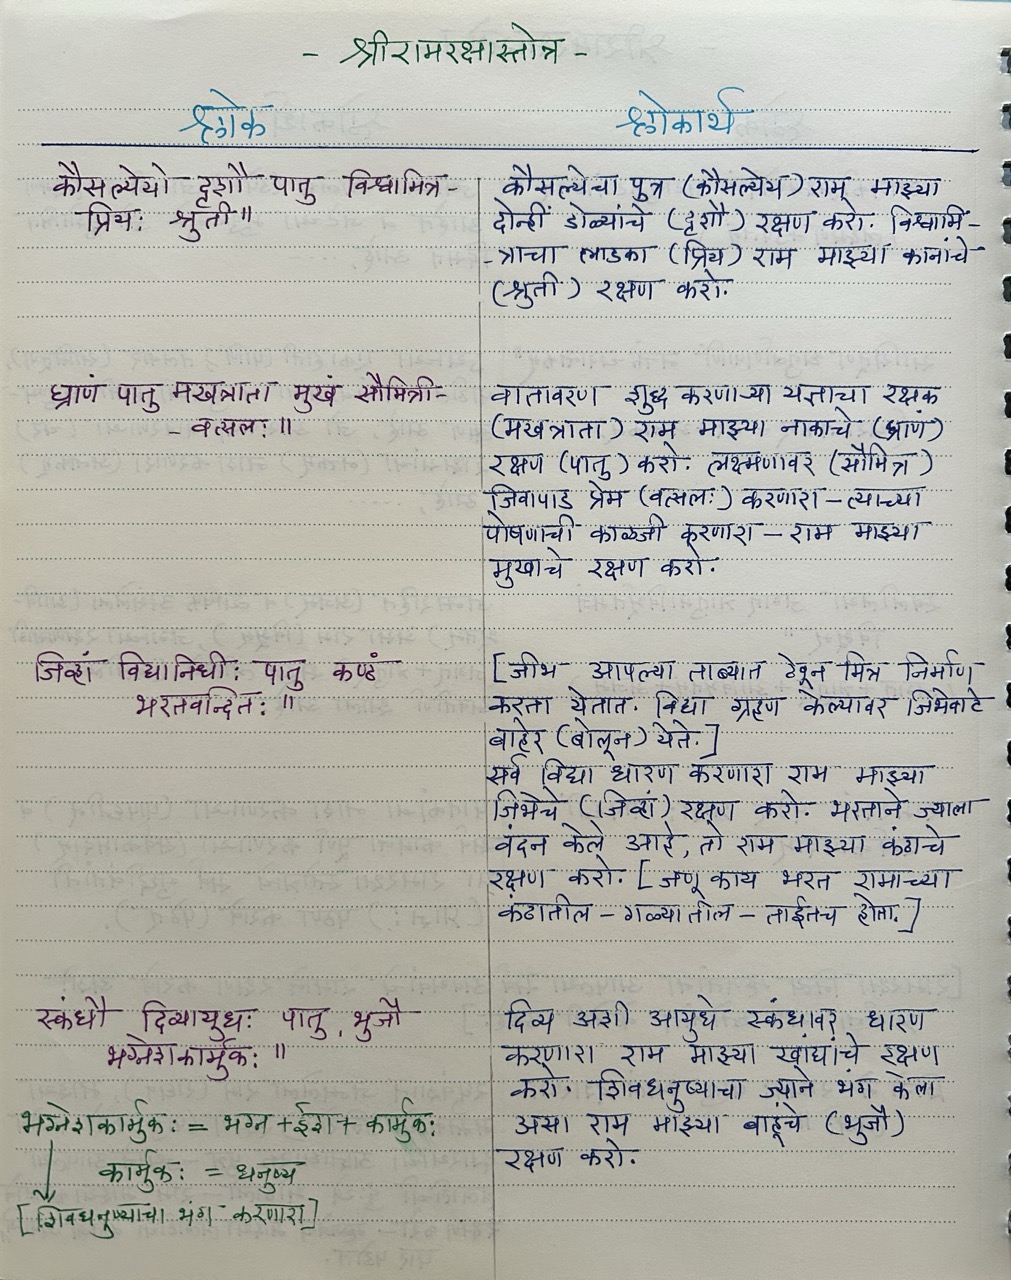 - श्रीरामरक्षास्तोत्र -
श्लोक
श्लोकार्थ
कौसल्येयो दृशौ पातु विश्वामित्र-
प्रियः श्रुती॥
कौसल्येचा पुत्र (कौसल्येय) राम माझ्या
दोन्ही डोळ्यांचे (दृशौ) रक्षण करो. विश्वामि-
-त्राचा लाडका (प्रिय) राम माझ्या कानांचे
(श्रुती) रक्षण करो.
घ्राणं पातु मखत्राता मुखं सौमित्री-
- वत्सलः॥
वातावरण शुद्ध करणाऱ्या यज्ञाचा रक्षक
(मखत्राता) राम माझ्या नाकाचे (घ्राणं)
रक्षण (पातु) करो. लक्ष्मणावर (सौमित्र)
जिवापाड प्रेम (वत्सलः) करणारा - त्याच्या
पोषणाची काळजी करणारा - राम माझ्या
मुखाचे रक्षण करो.
जिव्हां विद्यानिधीः पातु कण्ठं
भरतवन्दितः॥
[जीभ आपल्या ताब्यात ठेवून मित्र निर्माण
करता येतात. विद्या ग्रहण केल्यावर जिभेवाटे
बाहेर (बोलून) येते.]
सर्व विद्या धारण करणारा राम माझ्या
जिभेचे (जिव्हां) रक्षण करो. भरताने ज्याला
वंदन केले आहे, तो राम माझ्या कंठाचे
रक्षण करो. [जणू काय भरत रामाच्या
कंठातील - गळ्यातील - ताईतच होता.]
स्कंधौ दिव्यायुधः पातु, भुजौ
भग्नेशकार्मुकः॥
भग्नेशकार्मुकः = भग्न + ईश + कार्मुकः
कार्मुकः = धनुष्य
[शिवधनुष्याचा भंग करणारा]
दिव्य अशी आयुधे स्कंधावर धारण
करणारा राम माझ्या खांद्यांचे रक्षण
करो. शिवधनुष्याचा ज्याने भंग केला
असा राम माझ्या बाहूंचे (भुजौ)
रक्षण करो.